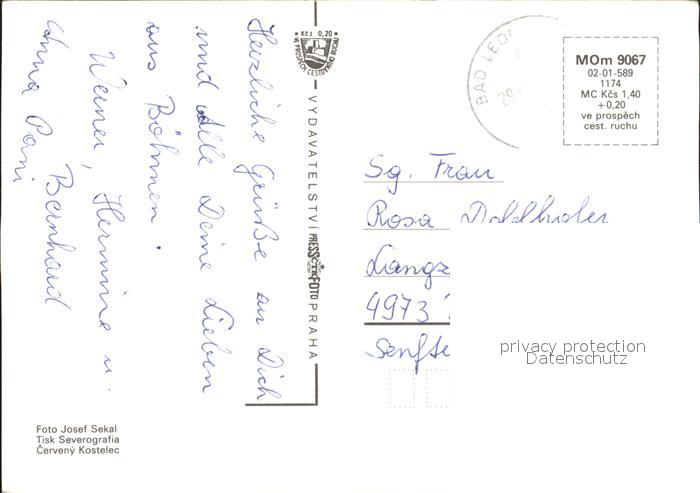 Herzliche Grüße an Dich
und Alle Deine Lieben
aus Böhmen.
Werner, Hermine u.
Bernhard
Anna
* Kčs 0,20 *
VE PROSPĚCH CESTOVNÍHO RUCHU
VYDAVATELSTVÍ PRESSFOTO PRAHA
BAD LEON
29
MOm 9067
02-01-589
1174
MC Kčs 1,40
+0,20
ve prospěch
cest. ruchu
Sg. Frau
Rosa
Langz
4973
Senfte
privacy protection
Datenschutz
Foto Josef Sekal
Tisk Severografia
Červený Kostelec